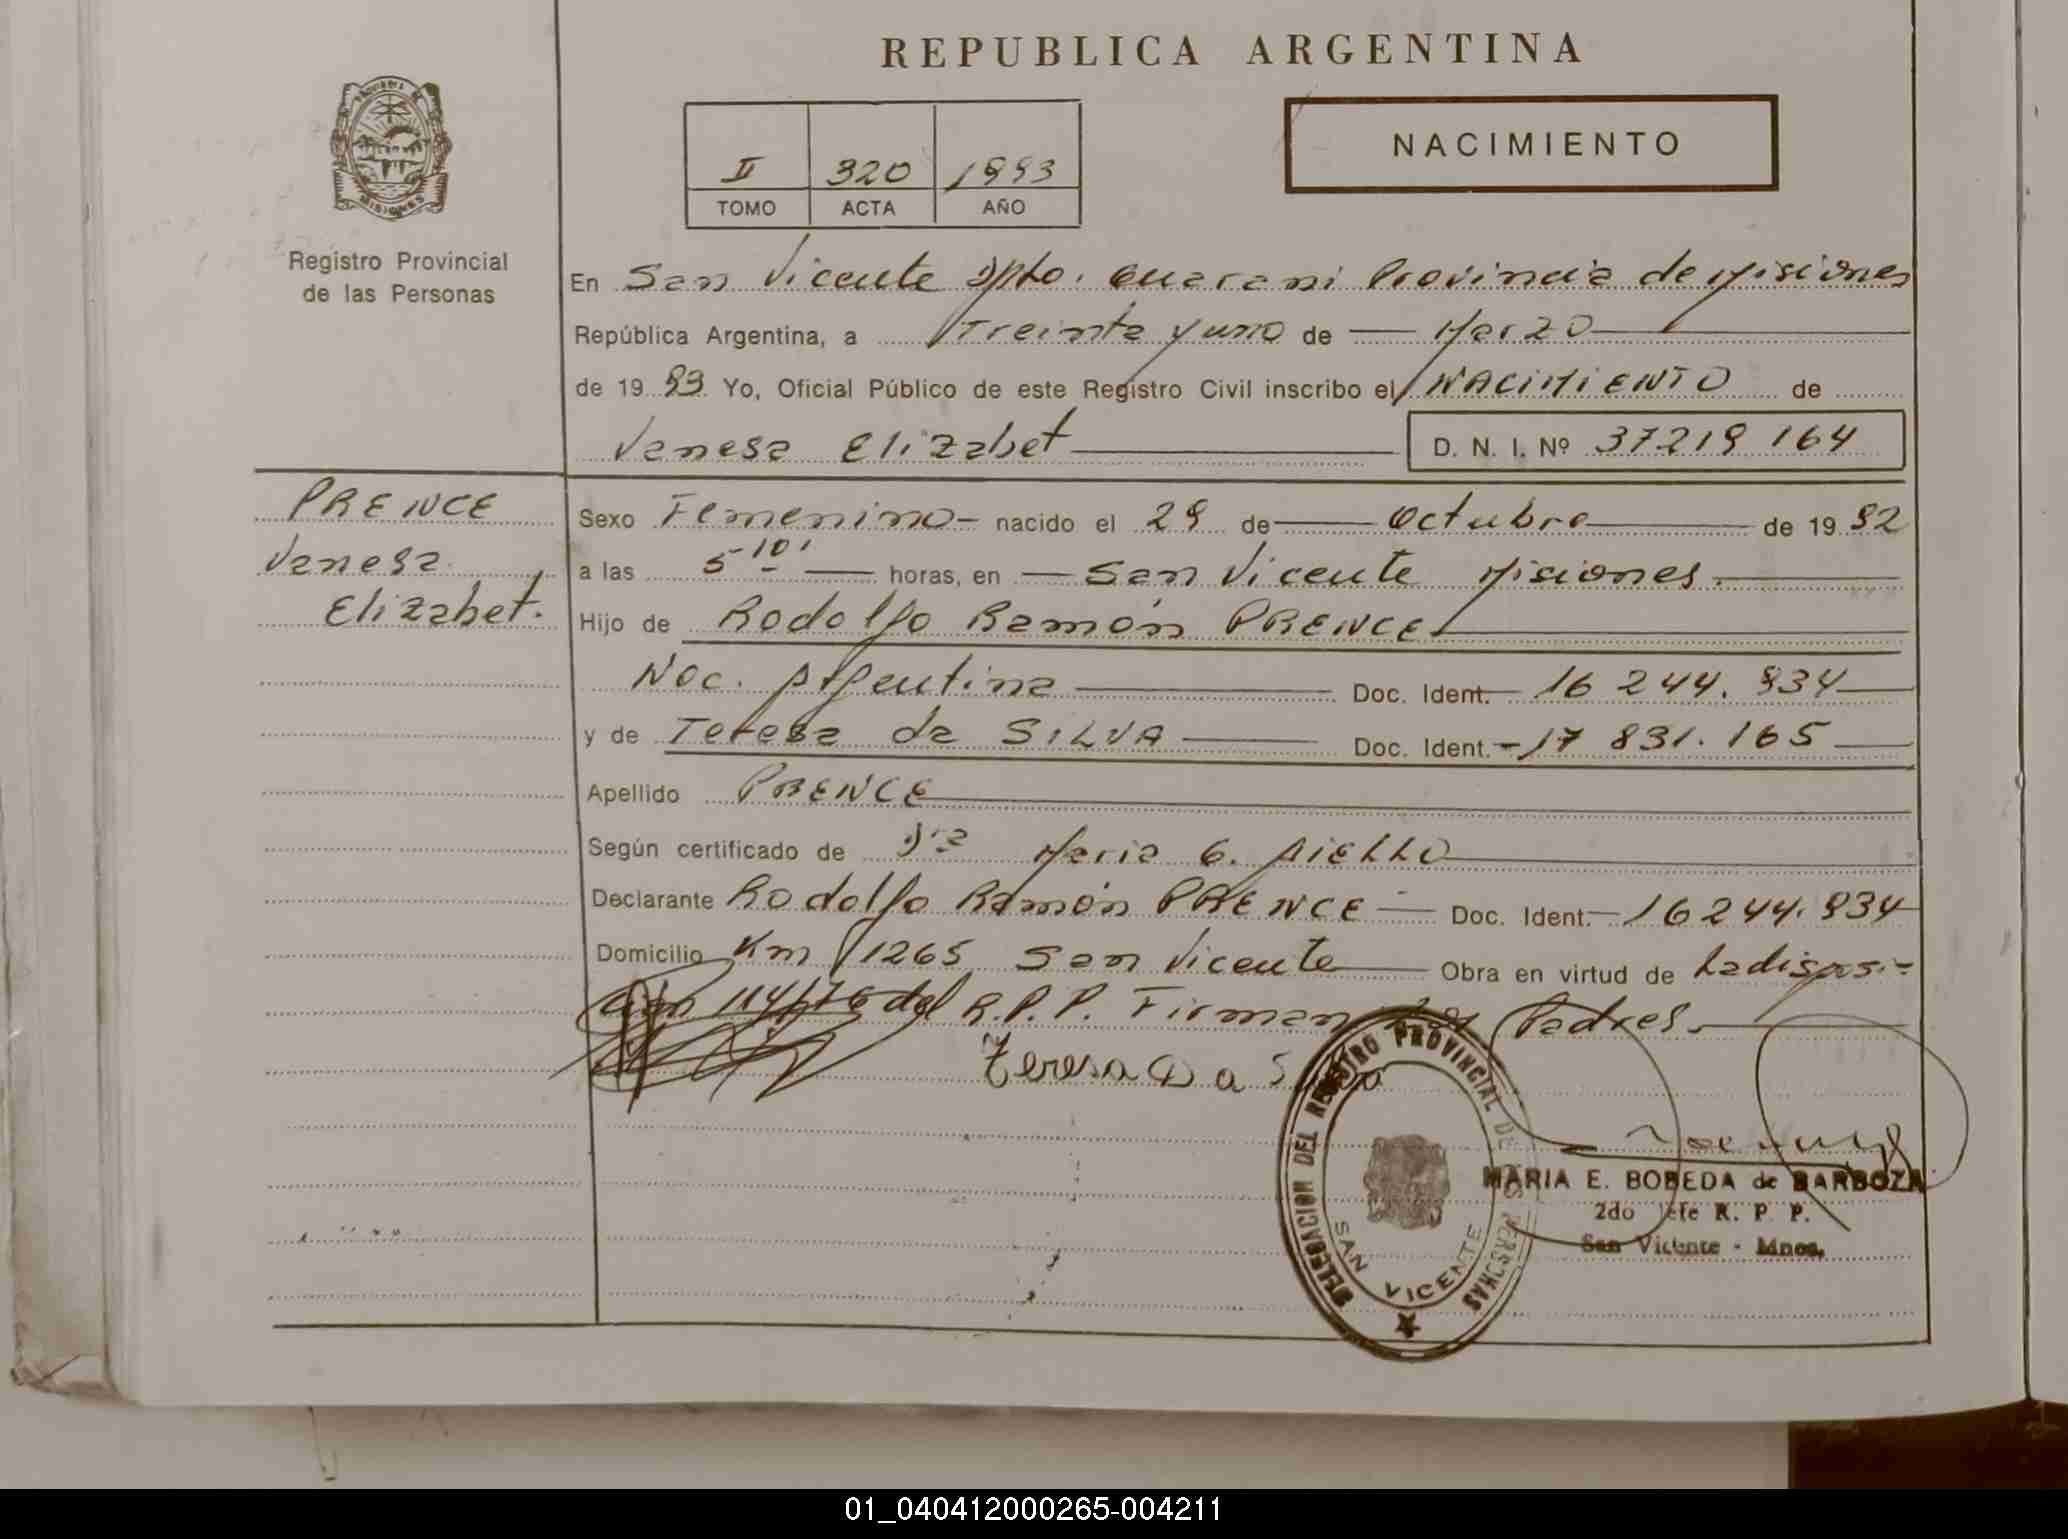 REPUBLICA ARGENTINA
NACIMIENTO
II 320 1993
TOMO ACTA AÑO
MISIONES
Registro Provincial
de las Personas
En San Vicente Dpto. Guarani Provincia de Misiones
República Argentina, a Treinta y uno de Marzo
de 1993 Yo, Oficial Público de este Registro Civil inscribo el NACIMIENTO de
Vanesa Elizabet D. N. I. Nº 37219 164
PRENCE
Vanesa
Elizabet.
Sexo Femenino nacido el 29 de Octubre de 1992
a las 5 10' horas, en San Vicente Misiones.
Hijo de Rodolfo Ramón PRENCE
Nac. Argentina Doc. Ident. 16 244. 934
y de Teresa da SILVA Doc. Ident. 17 831. 165
Apellido PRENCE
Según certificado de Dra Maria G. AIELLO
Declarante Rodolfo Ramón PRENCE Doc. Ident. 16 244. 934
Domicilio Km 1265 San Vicente Obra en virtud de La disposi-
ción 114/76 del R.P.P. Firman los Padres.
Teresa Da Silva
DELEGACION DEL REGISTRO PROVINCIAL DE LAS PERSONAS
SAN VICENTE
MARIA E. BOBEDA de BARBOZA
2do Jefe R. P. P.
San Vicente - Mnes.
01_040412000265-004211